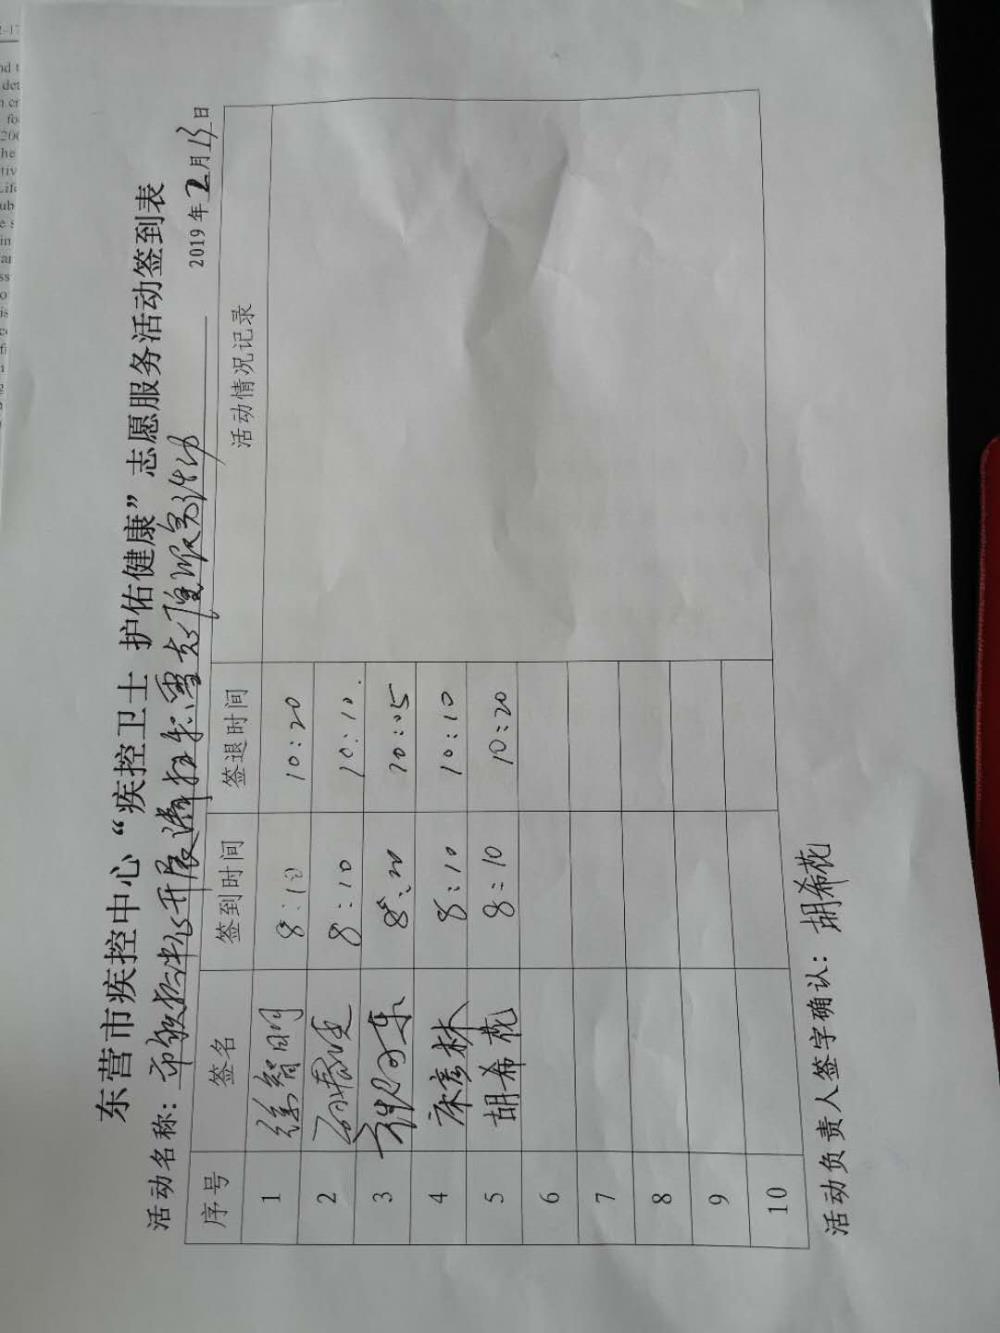 东营市疾控中心“疾控卫士 护佑健康”志愿服务活动签到表
活动名称：开展 志愿服务活动 2019年2月13日
序号 签名 签到时间 签退时间 活动情况记录
1 徐智明 8:10 10:20
2 8:10 10:10.
3 8:20 10:05
4 彦林 8:10 10:10
5 胡希花 8:10 10:20
6
7
8
9
10
活动负责人签字确认：胡希花